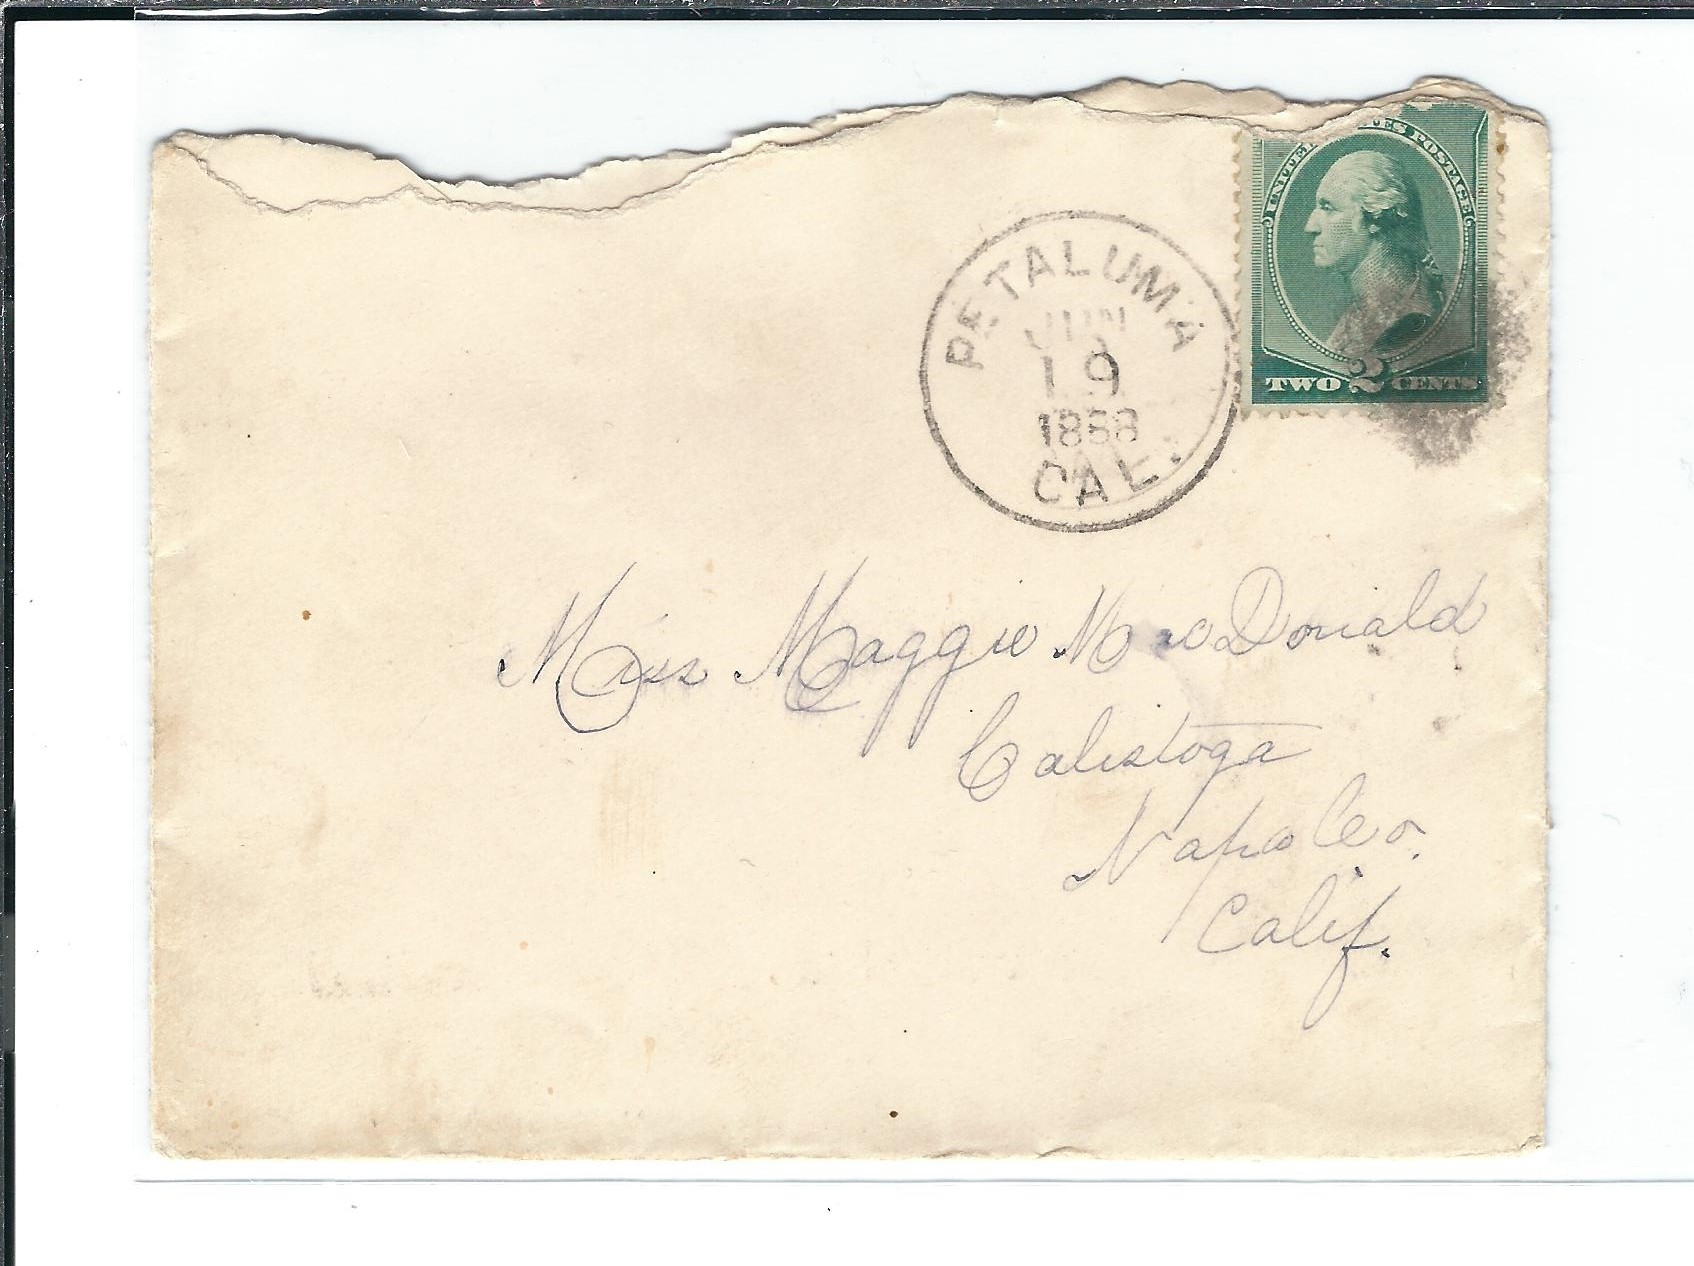 UNITED STATES POSTAGE
TWO 2 CENTS
PETALUMA
JUN
19
1888
CAL.
Miss Maggie MacDonald
Calistoga
Napa Co.
Calif.